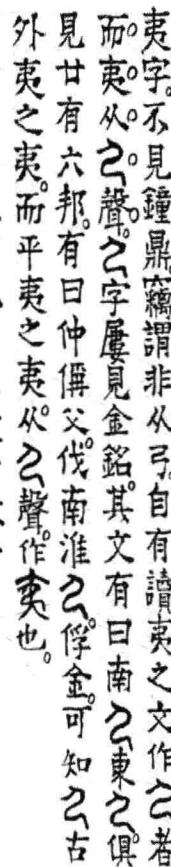 夷字。不見鐘鼎。竊謂非从弓。自有讀夷之文作者
而。夷。从。聲。字屢見金銘。其文有曰南東。俱
見廿有六邦。有曰仲偁父。伐南淮。俘金。可知古
外夷之夷。而平夷之夷从。聲。作也。